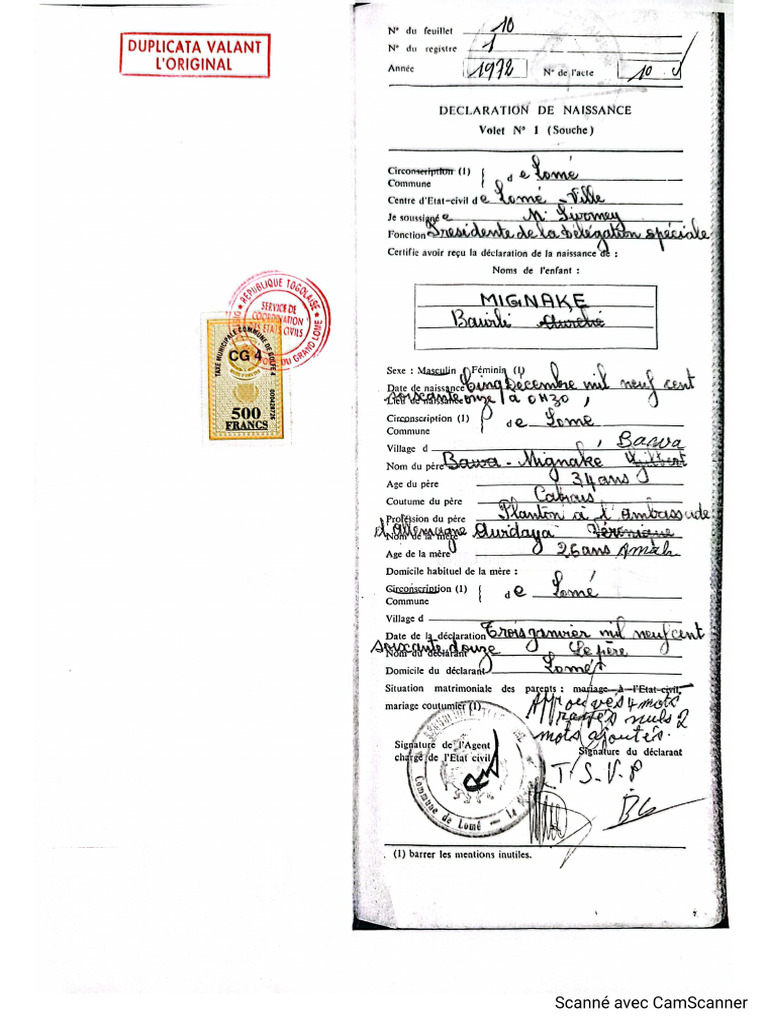 DUPLICATA VALANT
L'ORIGINAL
N° du feuillet 10
N° du registre 1
Année 1972 N° de l'acte 10
DECLARATION DE NAISSANCE
Volet N° 1 (Souche)
Circonscription (1)
Commune de Lomé
Centre d'Etat-civil de Lomé-Ville
Je soussignée M. Sivomey
Fonction Présidente de la Délégation spéciale
Certifie avoir reçu la déclaration de la naissance de :
Noms de l'enfant :
MIGNAKE
Bawili
Sexe : Masculin Féminin (1)
Date de naissance Cinq Décembre mil neuf cent
soixante onze, à 0H30,
Lieu de naissance
Circonscription (1)
Commune de Lomé
Village d
Nom du père Bawa - Mignake Bawa
Age du père 34 ans
Coutume du père Cabrais
Profession du père Planton à l'ambassade
d'Allemagne
Nom de la mère Véronique
Age de la mère 26 ans Amah
Domicile habituel de la mère :
Circonscription (1)
Commune de Lomé
Village d
Date de la déclaration Trois Janvier mil neuf cent
soixante douze
Nom du déclarant Le père
Domicile du déclarant Lomé
Situation matrimoniale des parents : mariage à l'Etat-civil,
mariage coutumier (1)
Approuvés 4 mots
rayés nuls 2
mots ajoutés.
Signature de l'Agent
chargé de l'Etat civil
Signature du déclarant
T.S.V.P
Commune de Lomé
(1) barrer les mentions inutiles.
REPUBLIQUE TOGOLAISE
SERVICE DE
COORDINATION
DES ETATS CIVILS
DU GRAND LOME
TAXE MUNICIPALE COMMUNE DE GOLFE 4
CG 4
500
FRANCS
Scanné avec CamScanner